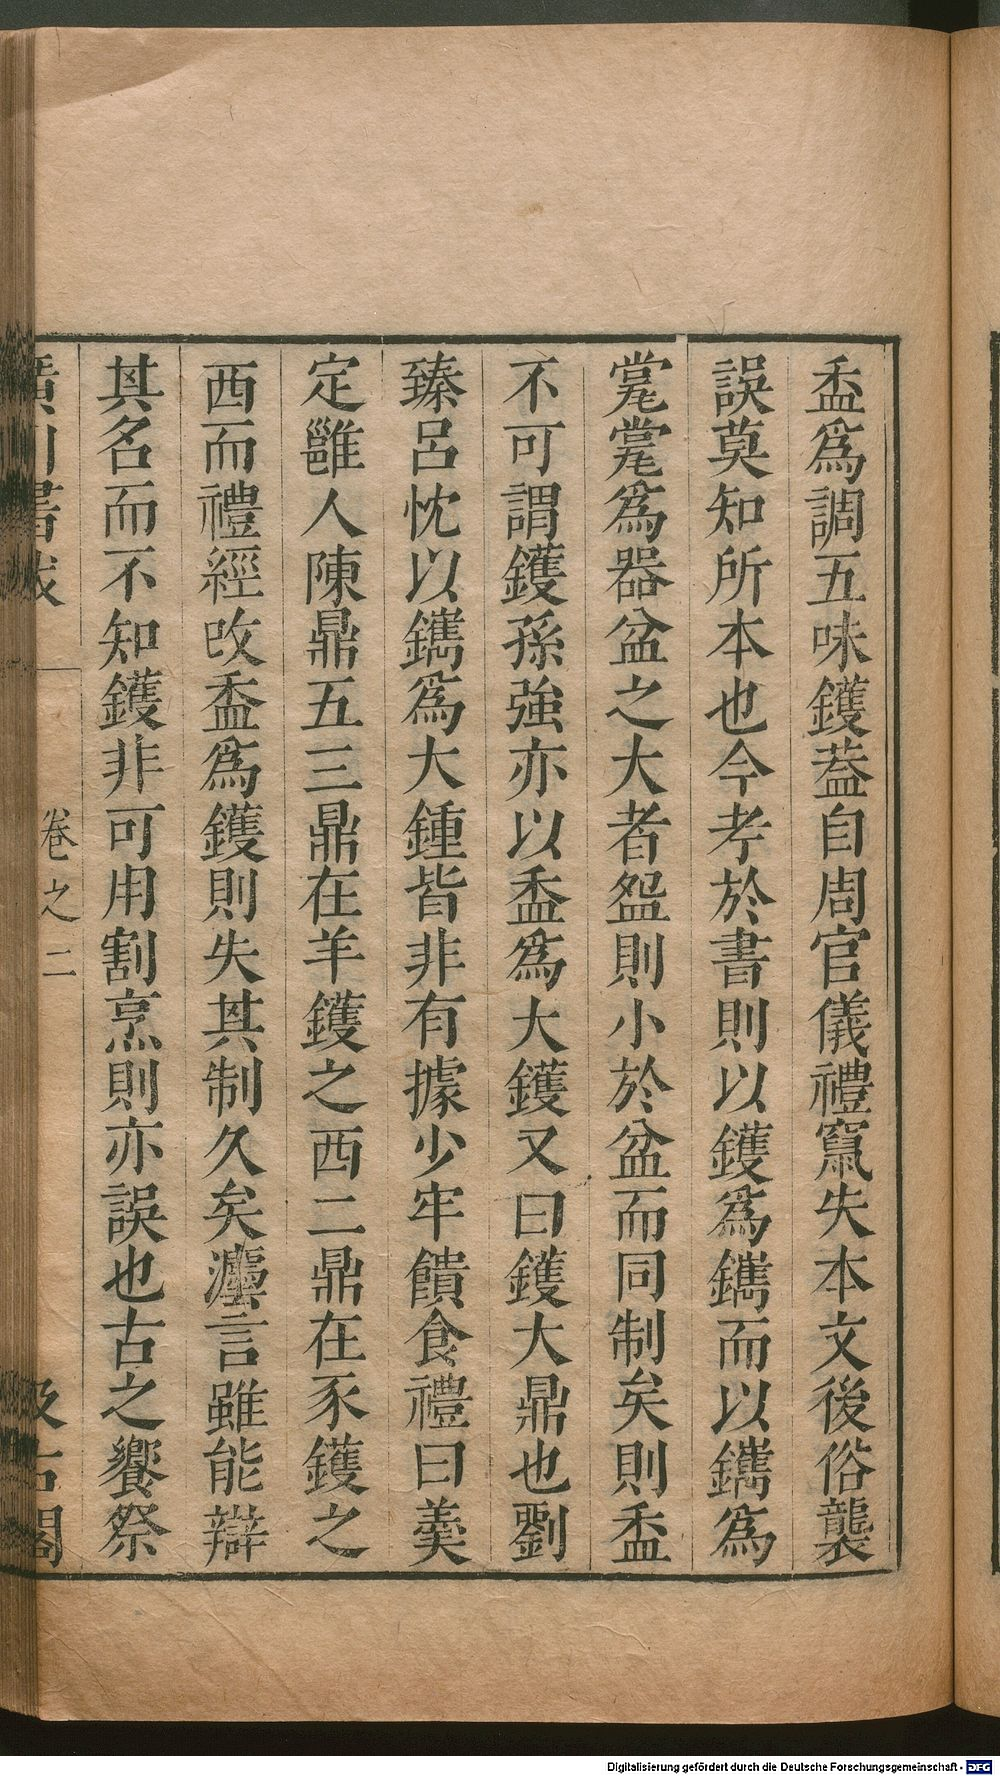 盉爲調五味鑊葢自周官儀禮竄失本文後俗襲
誤莫知所本也今考於書則以鑊爲鑴而以鑴爲
鼀鼀爲器盆之大者盌則小於盆而同制矣則盉
不可謂鑊孫強亦以盉爲大鑊又曰鑊大鼎也劉
臻呂忱以鑴爲大鍾皆非有據少牢饋食禮曰羹
定雝人陳鼎五三鼎在羊鑊之西二鼎在豕鑊之
西而禮經改盉爲鑊則失其制久矣言雖能辯
其名而不知鑊非可用割烹則亦誤也古之饗祭
廣川書跋
卷之二
汲古閣
Digitalisierung gefördert durch die Deutsche Forschungsgemeinschaft - DFG